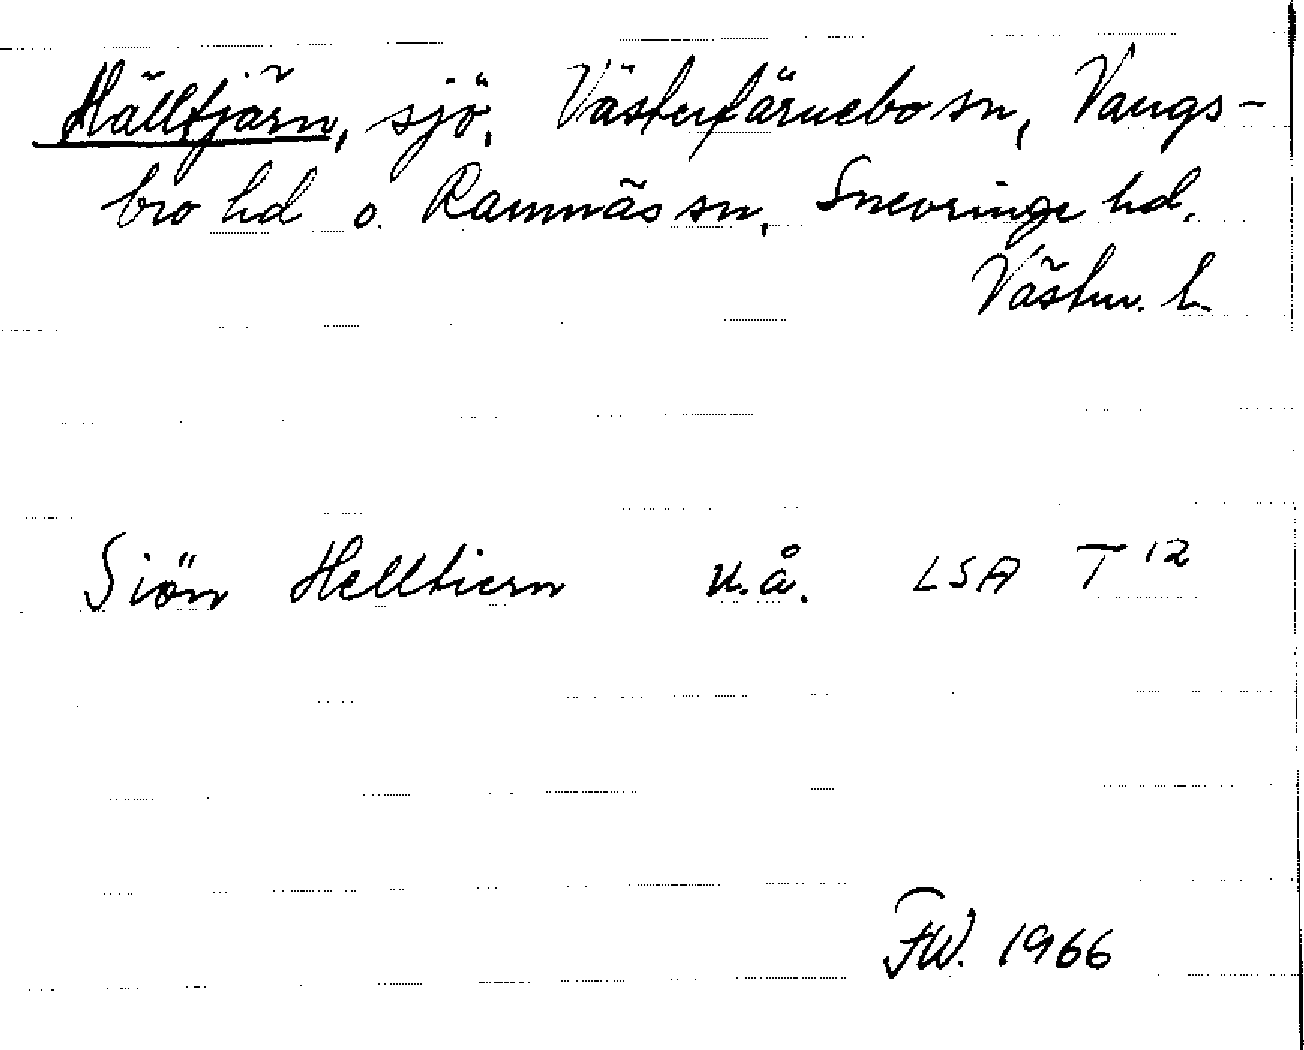 Hälltjärn, sjö, Västerfärnebo sn, Vangs-
bro hd o. Ramnäs sn, Snevringe hd.
Västm. l.
Siön Helltiern u.å. LSA T 12
FW. 1966